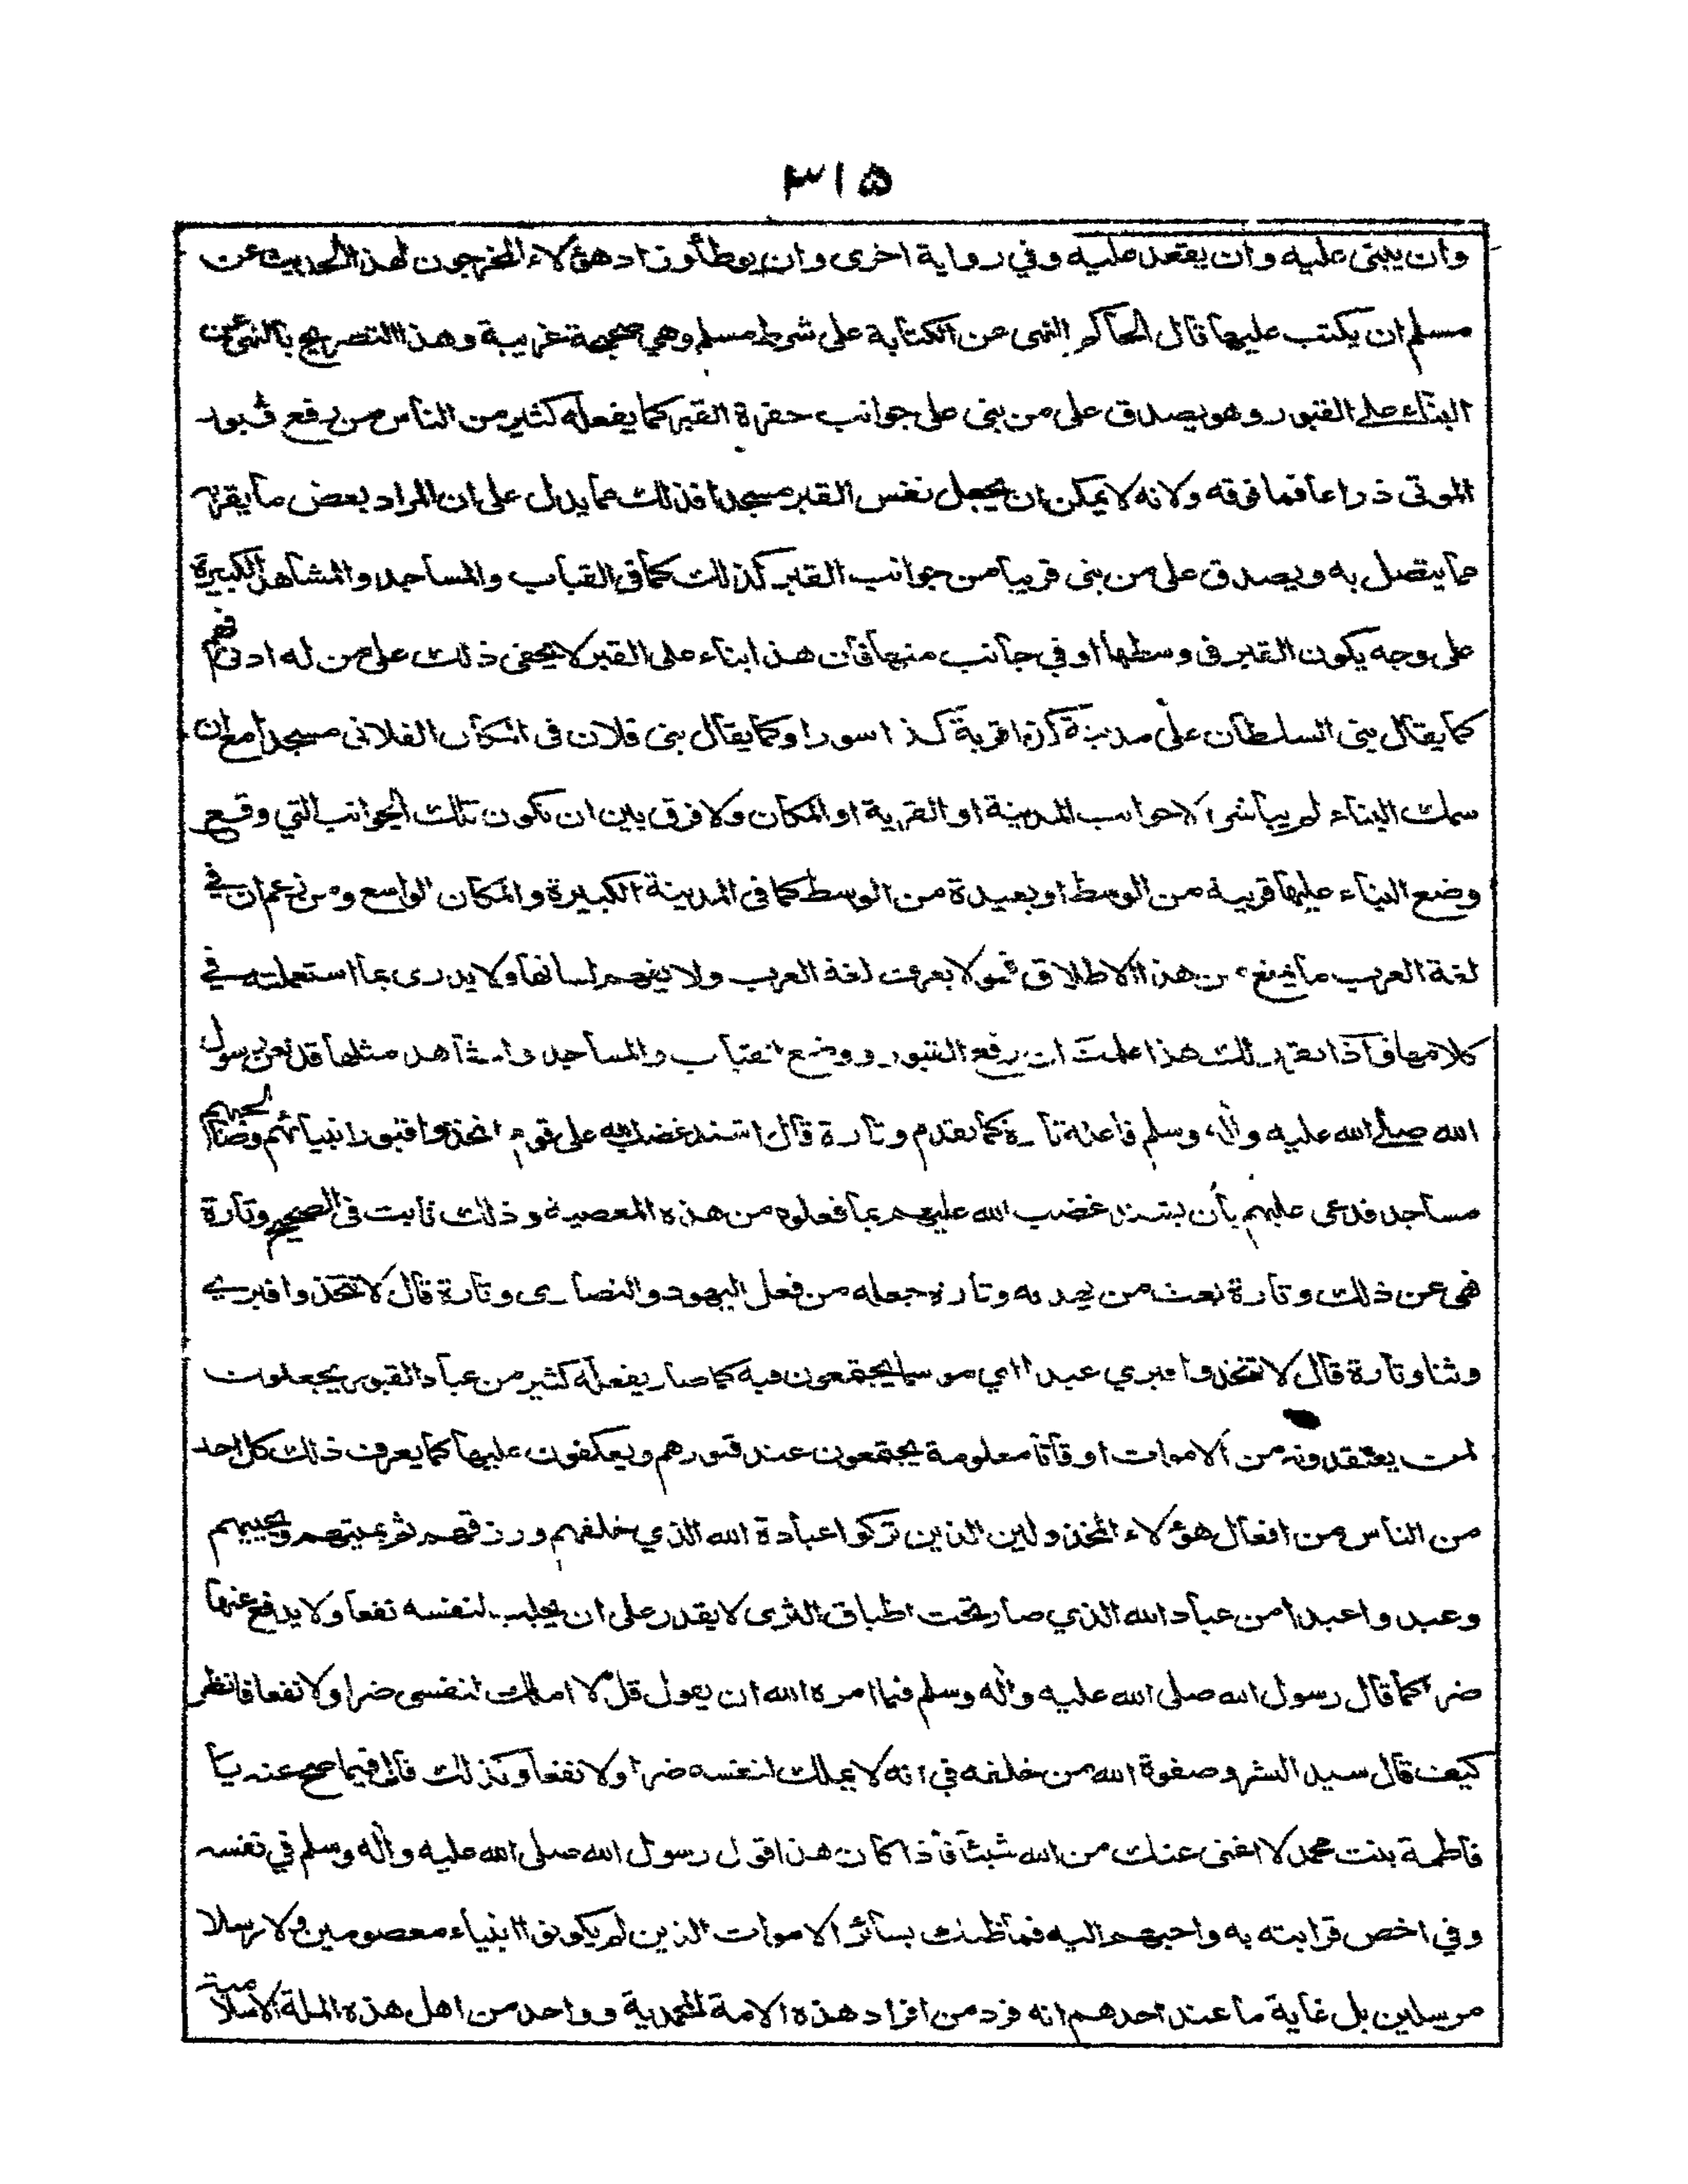 ٣١٥
وان يبنى عليه وان يقعد عليه وفي رواية اخرى وان يوطأ وزاد هؤلاء المخرجون لهذا الحديث عن
مسلم ان يكتب عليها قال الحاكم النهى عن الكتابة على شرط مسلم وهي صحيحة غريبة وهذا التصريح بالنهى عن
البناء على القبور وهو يصدق على من بنى على جوانب حفرة القبر كما يفعله كثير من الناس من رفع قبور
الموتى ذراعا فما فوقه ولانه لا يمكن ان يجعل نفس القبر مسجدا فذلك مما يدل على ان المراد بعض ما يقربه
مما يتصل به ويصدق على من بنى قريبا من جوانب القبر كذلك كما في القباب والمساجد والمشاهد الكبيرة
على وجه يكون القبر في وسطها او في جانب منها فان هذا بناء على القبر لا يخفى ذلك على من له ادنى فهم
كما يقال بنى السلطان على مدينة كذا او قرية كذا سورا وكما يقال بنى فلان في المكان الفلاني مسجدا مع ان
سمك البناء لم يباشر الا جوانب المدينة او القرية او المكان ولا فرق بين ان تكون تلك الجوانب التي وقع
وضع البناء عليها قريبة من الوسط او بعيدة من الوسط كما في المدينة الكبيرة والمكان الواسع ومن زعم ان في
لغة العرب ما يمنع من هذا الاطلاق فهو لا يعرف لغة العرب ولا يفهم لسانها ولا يدرى بما استعملته في
كلامها فاذا تقرر لك هذا علمت ان رفع القبور ووضع القباب والمساجد والمشاهد عليها قد لعن رسول
الله صلى الله عليه واله وسلم فاعله تارة كما تقدم وتارة قال اشتد غضب الله على قوم اتخذوا قبور انبيائهم وصالحيهم
مساجد فدعى عليهم بأن يشتد غضب الله عليهم بما فعلوه من هذه المعصية وذلك ثابت في الصحيح وتارة
نهى عن ذلك وتارة بعث من يهدمه وتارة جعله من فعل اليهود والنصارى وتارة قال لا تتخذوا قبري
وثنا وتارة قال لا تتخذوا قبري عيدا اي موسما يجتمعون فيه كما صار يفعله كثير من عباد القبور يجعلون
لمن يعتقدونه من الاموات اوقاتا معلومة يجتمعون عند قبورهم ويعكفون عليها كما يعرف ذلك كل احد
من الناس من افعال هؤلاء المخذولين الذين تركوا عبادة الله الذي خلقهم ورزقهم ثم يميتهم ويحييهم
وعبدوا عبدا من عباد الله الذي صار تحت اطباق الثرى لا يقدر على ان يجلب لنفسه نفعا ولا يدفع عنها
ضرا كما قال رسول الله صلى الله عليه واله وسلم فيما امره الله ان يقول قل لا املك لنفسى ضرا ولا نفعا فانظر
كيف قال سيد البشر وصفوة الله من خلقه في انه لا يملك لنفسه ضرا ولا نفعا وكذلك قال فيما صح عنه يا
فاطمة بنت محمد لا اغنى عنك من الله شيئا فاذا كان هذا قول رسول الله صلى الله عليه واله وسلم في نفسه
وفي اخص قرابته به واحبهم اليه فما ظنك بسائر الاموات الذين لم يكونوا انبياء معصومين ولا رسلا
مرسلين بل غاية ما عند احدهم انه فرد من افراد هذه الامة المحمدية وواحد من اهل هذه الملة الاسلامية